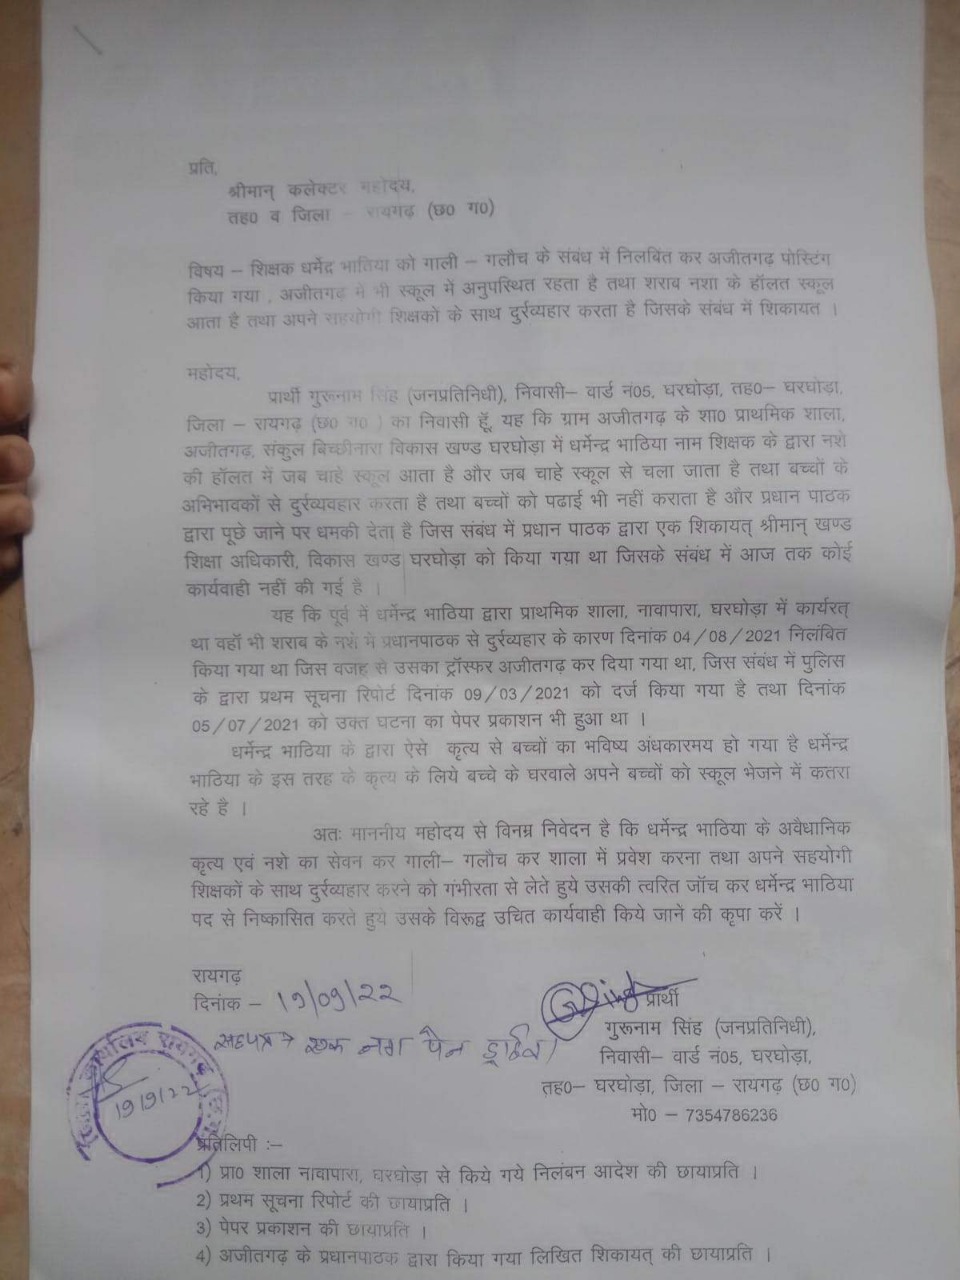 प्रति,
श्रीमान् कलेक्टर महोदय,
तह० व जिला – रायगढ़ (छ० ग०)
विषय – शिक्षक धर्मेद भातिया को गाली – गलौच के संबंध में निलबिंत कर अजीतगढ़ पोस्टिंग
किया गया , अजीतगढ़ में भी स्कूल में अनुपस्थित रहता है तथा शराब नशा के हॉलत स्कूल
आता है तथा अपने सहयोगी शिक्षको के साथ दुर्रव्यहार करता है जिसके संबंध में शिकायत ।
महोदय,
प्रार्थी गुरूनाम सिंह (जनप्रतिनिधी), निवासी– वार्ड नं05, घरघोड़ा, तह०– घरघोड़ा,
जिला – रायगढ़ (छ० ग० ) का निवासी हूँ, यह कि ग्राम अजीतगढ़ के शा० प्राथमिक शाला,
अजीतगढ़, संकुल बिच्छीनारा विकास खण्ड घरघोड़ा में धर्मेन्द्र भाठिया नाम शिक्षक के द्वारा नशे
की हॉलत में जब चाहे स्कूल आता है और जब चाहे स्कूल से चला जाता है तथा बच्चों के
अभिभावकों से दुर्रव्यवहार करता है तथा बच्चों को पढाई भी नहीं कराता है और प्रधान पाठक
द्वारा पूछे जाने पर धमकी देता है जिस संबंध में प्रधान पाठक द्वारा एक शिकायत् श्रीमान् खण्ड
शिक्षा अधिकारी, विकास खण्ड घरघोड़ा को किया गया था जिसके संबंध में आज तक कोई
कार्यवाही नहीं की गई है ।
यह कि पूर्व में धर्मेन्द्र भाठिया द्वारा प्राथमिक शाला, नावापारा, घरघोड़ा में कार्यरत्
था वहॉं भी शराब के नशे मे प्रधानपाठक से दुर्रव्यहार के कारण दिनांक 04/08/2021 निलंबित
किया गया था जिस वजह से उसका ट्रॉस्फर अजीतगढ़ कर दिया गया था, जिस संबंध में पुलिस
के द्वारा प्रथम सूचना रिपोर्ट दिनांक 09/03/2021 को दर्ज किया गया है तथा दिनांक
05/07/2021 को उक्त घटना का पेपर प्रकाशन भी हुआ था ।
धर्मेन्द्र भाठिया के द्वारा ऐसे कृत्य से बच्चों का भविष्य अंधकारमय हो गया है धर्मेन्द्र
भाठिया के इस तरह के कृत्य के लिये बच्चे के घरवाले अपने बच्चों को स्कूल भेजने में कतरा
रहे है ।
अतः माननीय महोदय से विनम्र निवेदन है कि धर्मेन्द्र भाठिया के अवैधानिक
कृत्य एवं नशे का सेवन कर गाली– गलौच कर शाला में प्रवेश करना तथा अपने सहयोगी
शिक्षकों के साथ दुर्रव्यहार करने को गंभीरता से लेते हुये उसकी त्वरित जॉच कर धर्मेन्द्र भाठिया
पद से निष्कासित करते हुये उसके विरूद्व उचित कार्यवाही किये जाने की कृपा करें ।
रायगढ़
दिनांक – 19/09/22
प्रार्थी
सहपत्र → एक नग पेन ड्राईव।
गुरूनाम सिंह (जनप्रतिनिधी),
निवासी– वार्ड नं05, घरघोड़ा,
तह०– घरघोड़ा, जिला – रायगढ़ (छ० ग०)
मो० – 7354786236
कार्यालय रायगढ़
19/9/22
प्रतिलिपी :–
1) प्रा० शाला नावापारा, घरघोड़ा से किये गये निलंबन आदेश की छायाप्रति ।
2) प्रथम सूचना रिपोर्ट की छायाप्रति ।
3) पेपर प्रकाशन की छायाप्रति ।
4) अजीतगढ़ के प्रधानपाठक द्वारा किया गया लिखित शिकायत् की छायाप्रति ।